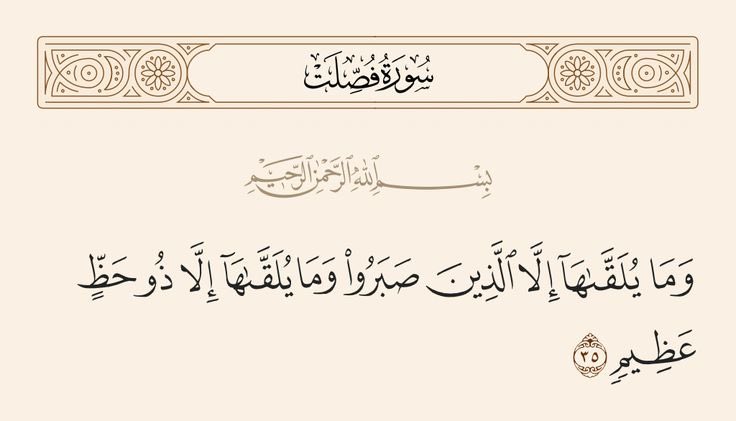 سُورَةُ فُصِّلَتْ
بِسْمِ ٱللَّهِ ٱلرَّحْمَٰنِ ٱلرَّحِيمِ
وَمَا يُلَقَّىٰهَآ إِلَّا ٱلَّذِينَ صَبَرُوا۟ وَمَا يُلَقَّىٰهَآ إِلَّا ذُو حَظٍّ
عَظِيمٍ ٣٥